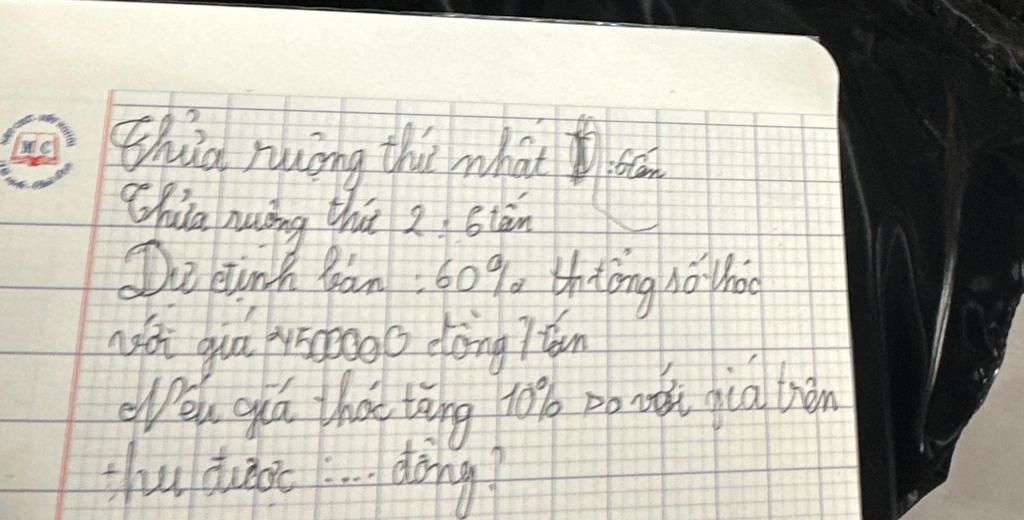 Thửa ruộng thứ nhất : 6 tấn
Thửa ruộng thứ 2 : 6 tấn
Dự định bán : 60% tổng số thóc
với giá 7500000 đồng / tấn
Nếu giá thóc tăng 10% so với giá trên
thu được : .... đồng?
MC